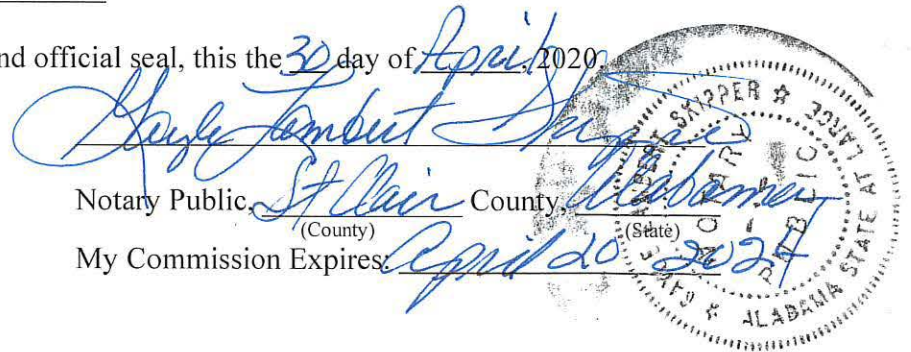 nd official seal, this the 30 day of April, 2020.
Gayle Lambert Skipper
Notary Public, St Clair County, Alabama
(County) (State)
My Commission Expires: April 20 2024
GAYLE LAMBERT SKIPPER ☆ ALABAMA STATE AT LARGE ☆
NOTARY
PUBLIC